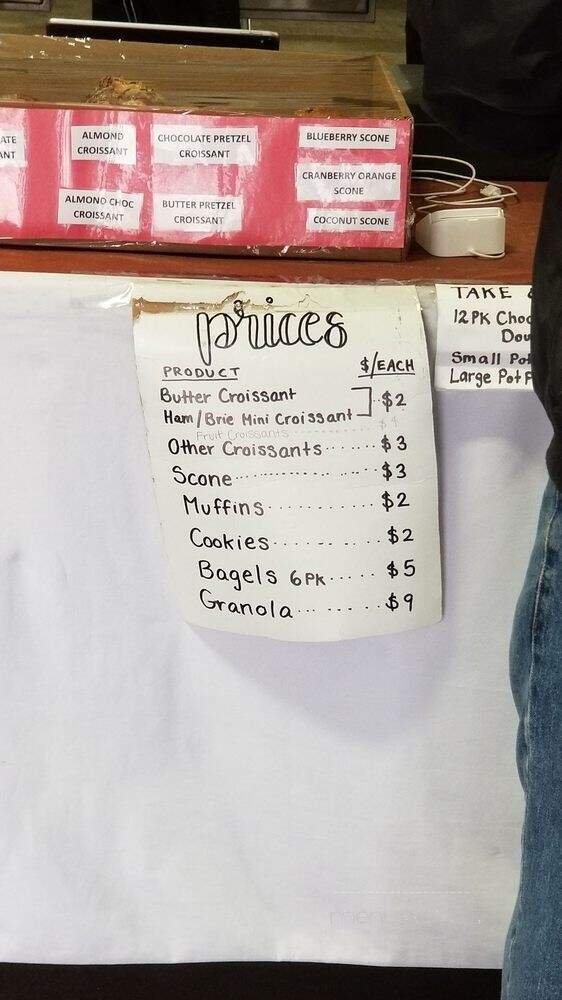 ATE
ANT
ALMOND
CROISSANT
CHOCOLATE PRETZEL
CROISSANT
BLUEBERRY SCONE
CRANBERRY ORANGE
SCONE
ALMOND CHOC
CROISSANT
BUTTER PRETZEL
CROISSANT
COCONUT SCONE
prices
PRODUCT $/EACH
Butter Croissant
Ham/Brie Mini Croissant $2
Fruit Croissants $4
Other Croissants $3
Scone $3
Muffins $2
Cookies $2
Bagels 6PK $5
Granola $9
TAKE
12PK Choc
Dou
Small Pot
Large Pot P